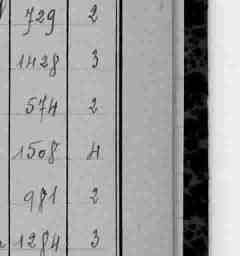 729 2
1428 3
574 2
1508 4
981 2
1284 3